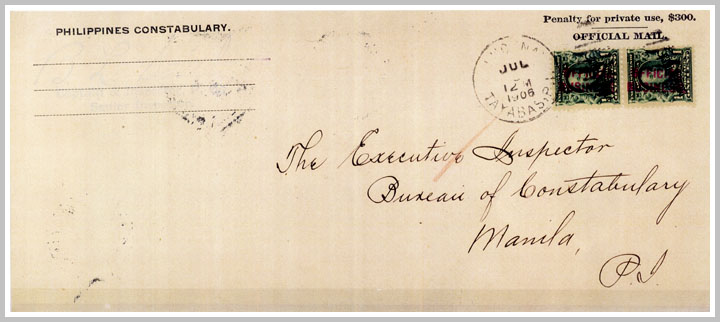 PHILIPPINES CONSTABULARY.
Penalty for private use, $300.
OFFICIAL MAIL.
JUL
12 M
1906
TAYABAS
The Executive Inspector
Bureau of Constabulary
Manila,
P.I.